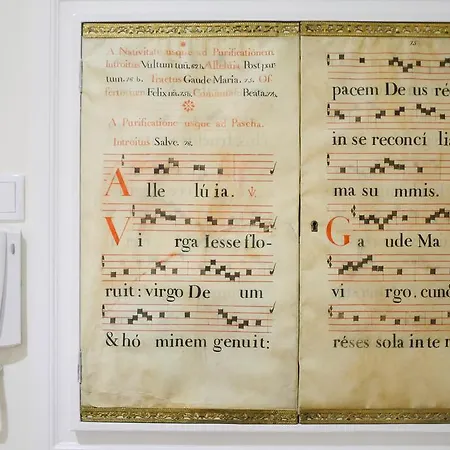 A Nativitate usque ad Purificationem
Introitus Vultum tuũ. 82 b. Alleluia Post par
tum. 16 b. Tractus Gaude Maria. 15. Of
fertorium Felix
Beata. 78.
A Purificatione usque ad Pascha.
Introitus Salve. 76.
Alle lúia.
Virga Iesse flo-
ruit: virgo De um
& hó minem genuit:
15
pacem De us ré
in se reconcí lia
ma su mmis.
Gaude Ma
vi rgo. cunc
réses sola inte r